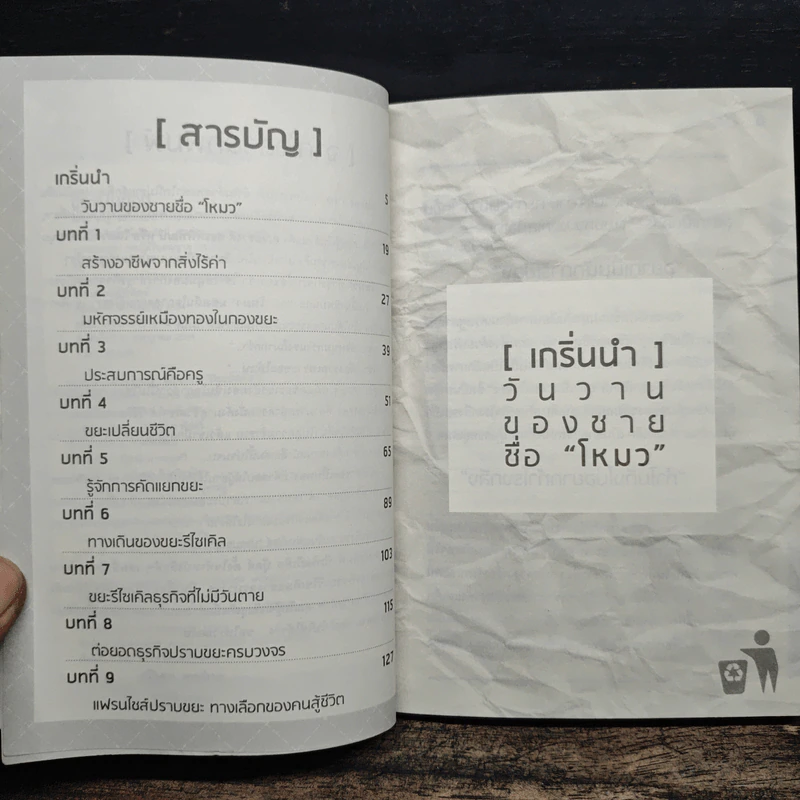 [ สารบัญ ]
เกริ่นนำ
วันวานของชายชื่อ “โหมว” 5
บทที่ 1
สร้างอาชีพจากสิ่งไร้ค่า 19
บทที่ 2
มหัศจรรย์เหมืองทองในกองขยะ 27
บทที่ 3
ประสบการณ์คือครู 39
บทที่ 4
ขยะเปลี่ยนชีวิต 51
บทที่ 5
รู้จักการคัดแยกขยะ 65
บทที่ 6
ทางเดินของขยะรีไซเคิล 89
บทที่ 7
ขยะรีไซเคิลธุรกิจที่ไม่มีวันตาย 103
บทที่ 8
ต่อยอดธุรกิจปราบขยะครบวงจร 115
บทที่ 9
แฟรนไชส์ปราบขยะ ทางเลือกของคนสู้ชีวิต 127
[ เกริ่นนำ ]
วันวาน
ของชาย
ชื่อ “โหมว”